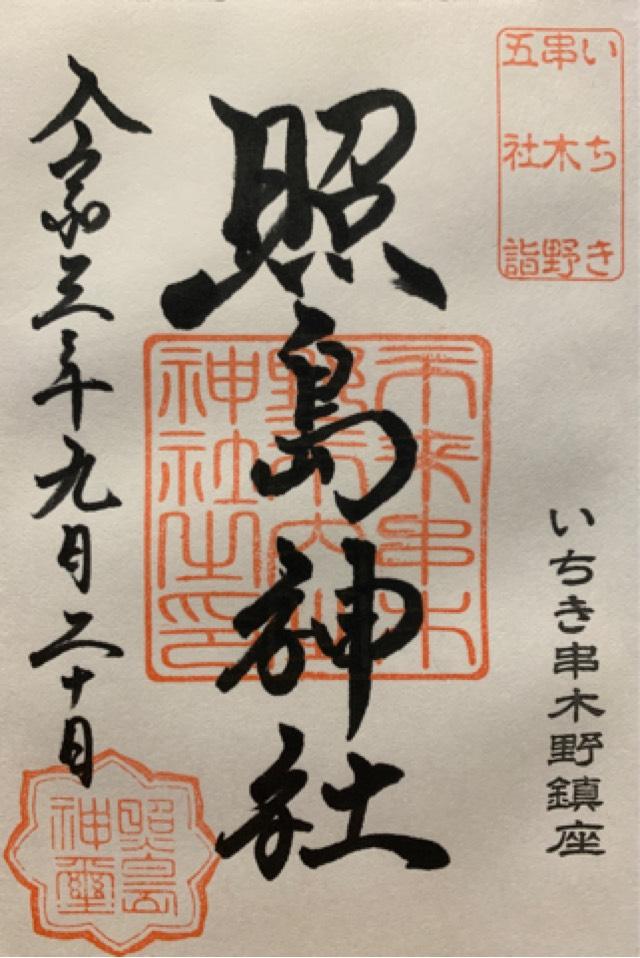 いちき
串木野
五社詣
いちき串木野鎮座
照島神社
神社之印
令和三年九月二十日
照島
神璽